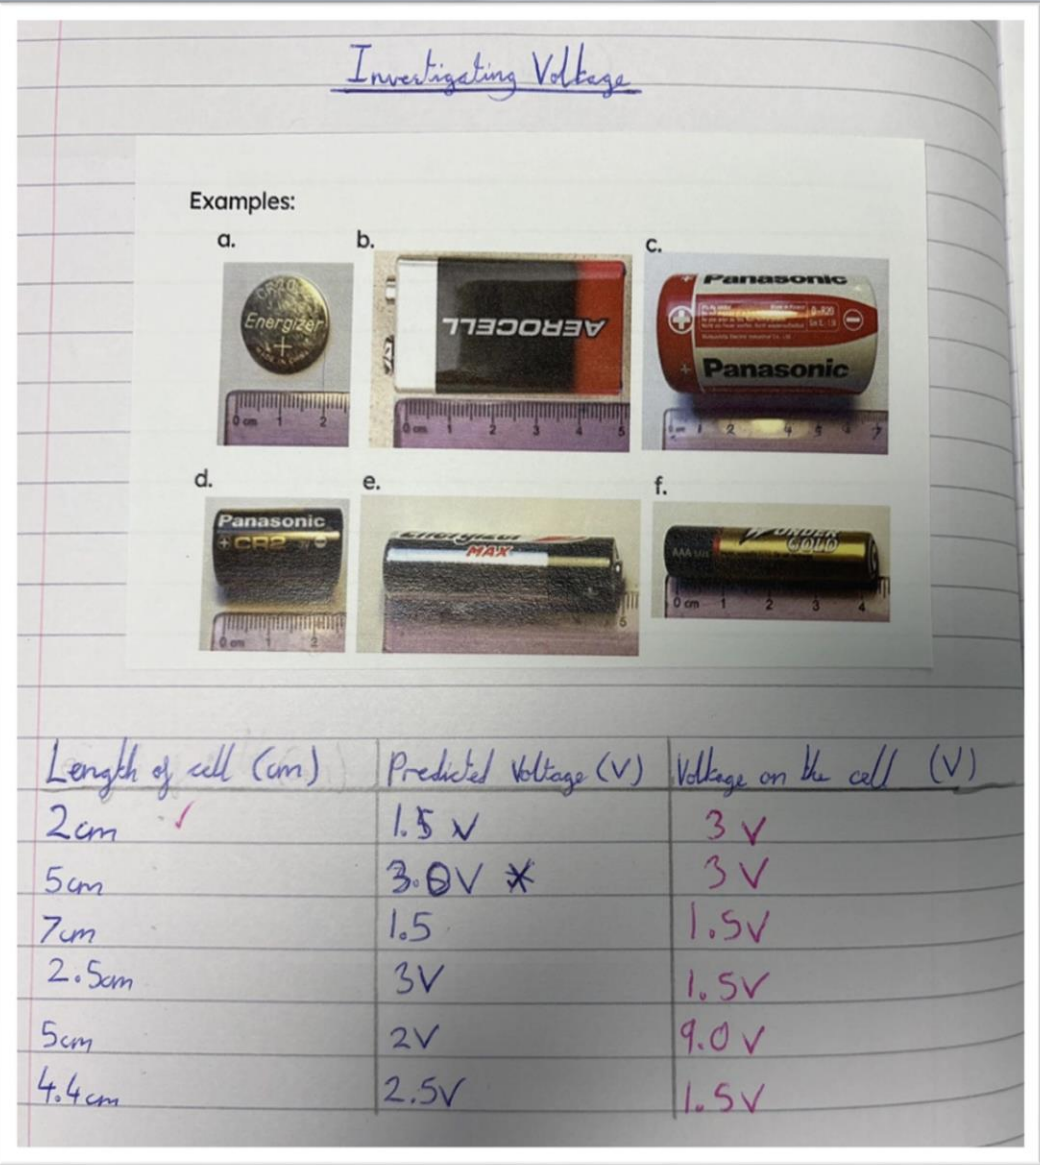 Investigating Voltage
Examples:
a. b. c.
Energizer
+
0 cm 1 2
AEROCELL
0 cm 1 2 3 4 5
Panasonic
+ -
+ Panasonic
1 2 4 5 6 7
d. e. f.
Panasonic
+ CR2 -
0 cm 1 2
Energizer
MAX
6
WONDER
GOLD
AAA
0 cm 1 2 3 4
Length of cell (cm) Predicted Voltage (V) Voltage on the cell (V)
2cm ✓ 1.5 V 3 V
5cm 3.0V * 3 V
7cm 1.5 1.5V
2.5cm 3V 1.5V
5cm 2V 9.0 V
4.4cm 2.5V 1.5V